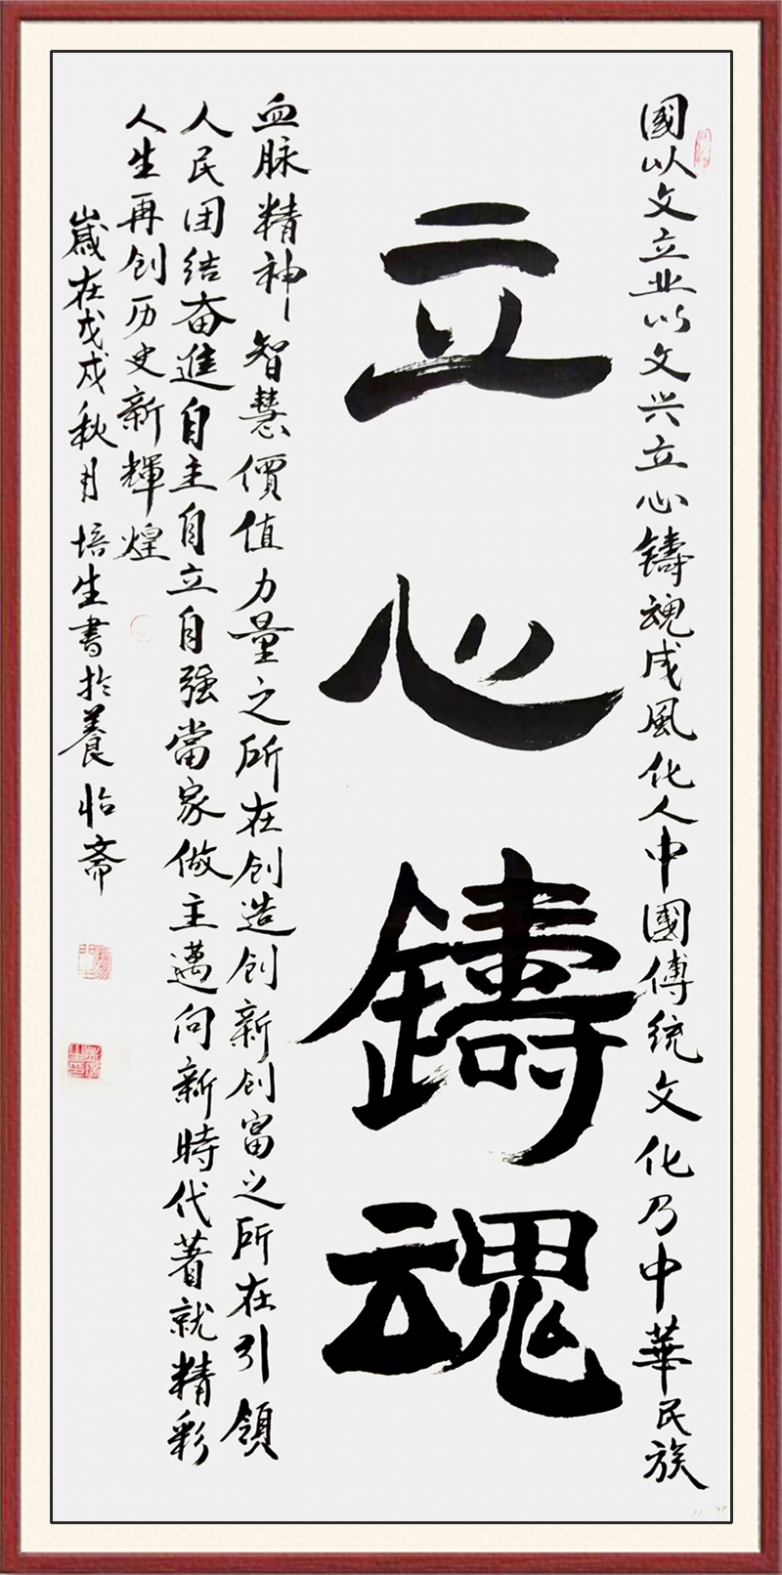 國以文立业以文兴立心鑄魂成風化人中國傅统文化乃中華民族
立心鑄魂
血脉精神智慧價值力量之所在创造创新创富之所在引領
人民团结奋進自主自立自强當家做主邁向新時代著就精彩
人生再创历史新輝煌
嵗在戊戌秋月培生書於養怡斋